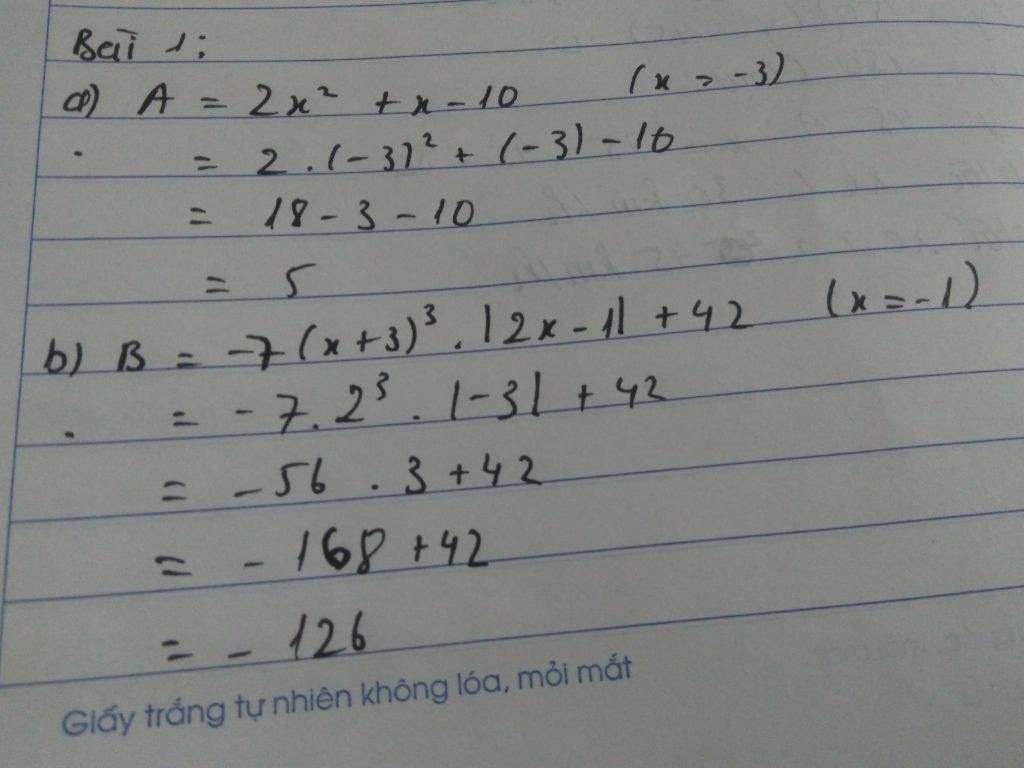 Bài 1:
a) A = 2x² + x - 10 (x = -3)
= 2 . (-3)² + (-3) - 10
= 18 - 3 - 10
= 5
b) B = -7(x+3)³ . |2x - 1| + 42 (x = -1)
= -7 . 2³ . |-3| + 42
= -56 . 3 + 42
= -168 + 42
= -126
Giấy trắng tự nhiên không lóa, mỏi mắt